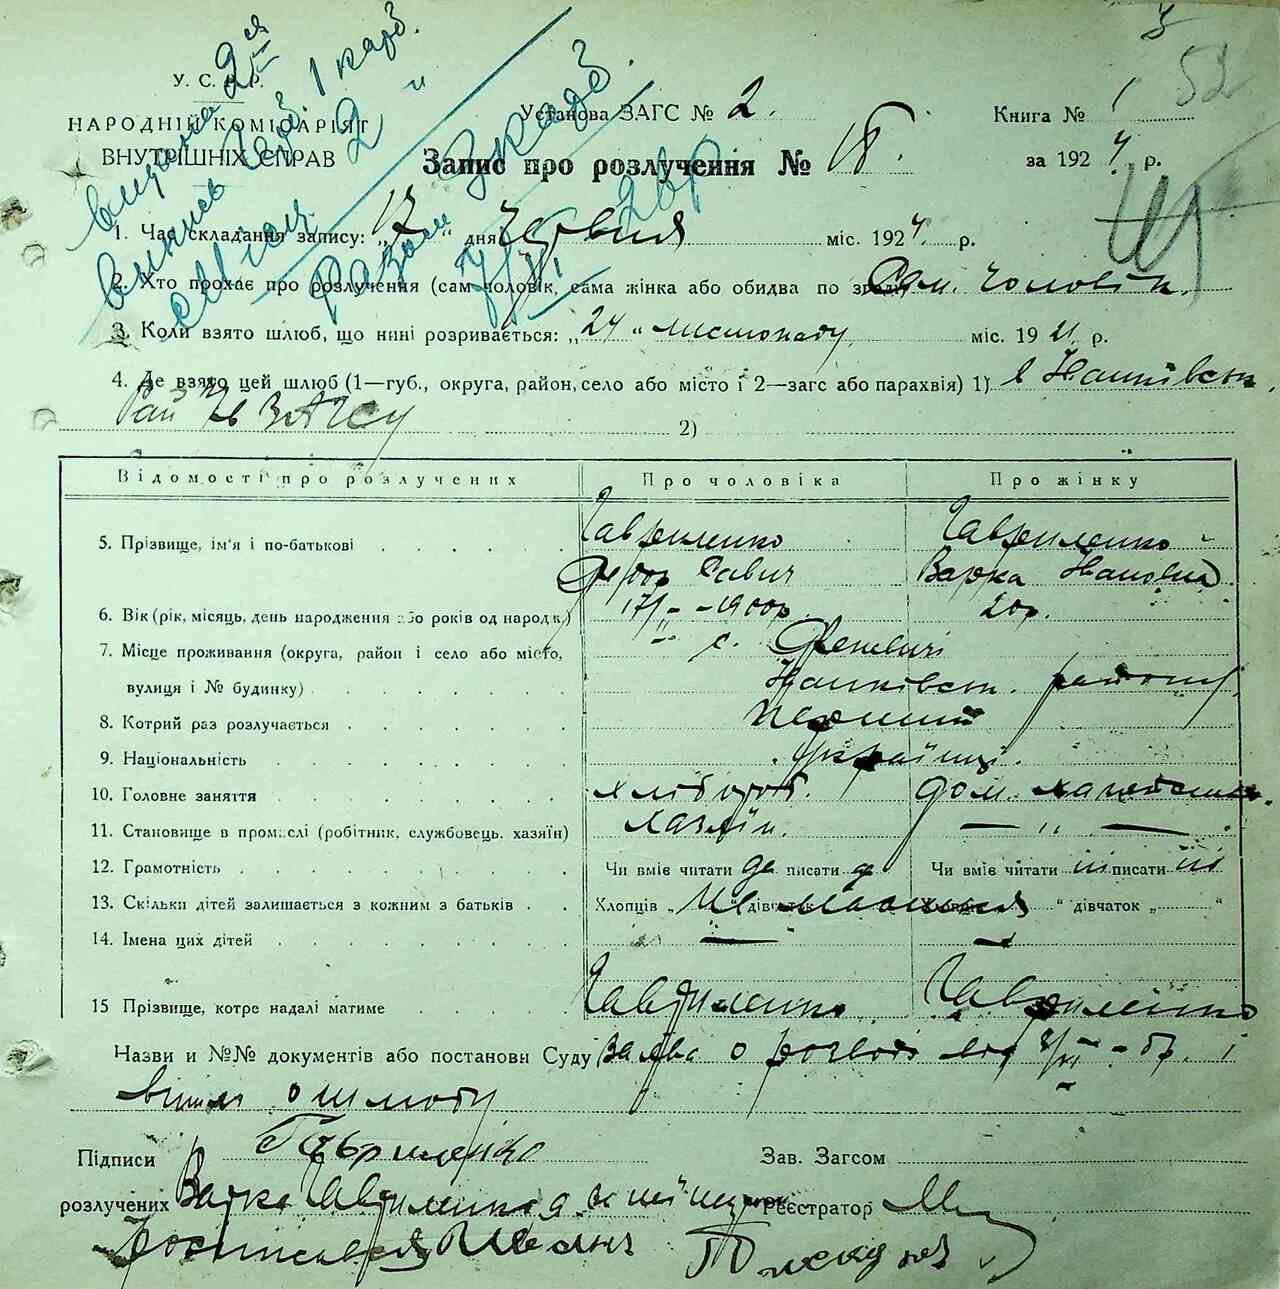 У. С. Р. Р.
НАРОДНІЙ КОМІСАРІЯТ
ВНУТРІШНІХ СПРАВ
видана 2ая
випись
1 карб.
2 "
Разом 3 карб.
Установа ЗАГС № 2.
Книга № 1
52
Запис про розлучення № 18.
за 1927 р.
1. Час складання запису: „17" дня Червня міс. 1927. р.
2. Хто прохає про розлучення (сам чоловік, сама жінка або обидва по згоді) Сам. чоловік.
3. Коли взято шлюб, що нині розривається: „24" листопаду міс. 1921. р.
4. Де взято цей шлюб (1—губ., округа, район, село або місто і 2—загс або парахвія) 1) в Іванківськ.
Рай ЗАГСу 2)
Відомості про розлучених Про чоловіка Про жінку
5. Прізвище, ім'я і по-батькові Гавриленко Гавриленко
Федор Савич Варка Івановна
6. Вік (рік, місяць, день народження або років од народж.) 1900р 20р.
7. Місце проживання (округа, район і село або місто, с. Феневичі
вулиця і № будинку) Іванківськ. району.
8. Котрий раз розлучається перший
9. Національність українці.
10. Головне заняття хлібороб. дом. хазяйка.
11. Становище в промислі (робітник, службовець, хазяїн) хазяїн. — „ —
12. Грамотність Чи вміє читати да писати да Чи вміє читати ні писати ні
13. Скільки дітей залишається з кожним з батьків Хлопців „ Не " дівчаток „ " дівчаток „ "
14. Імена цих дітей — —
15 Прізвище, котре надалі матиме Гавриленко Гавриленко
Назви и №№ документів або постанови Суду Заява о розводі від р. і
о шлюбу
Підписи Гавриленко Зав. Загсом
розлучених Варка Гавриленко а за неї Реєстратор
Росписався